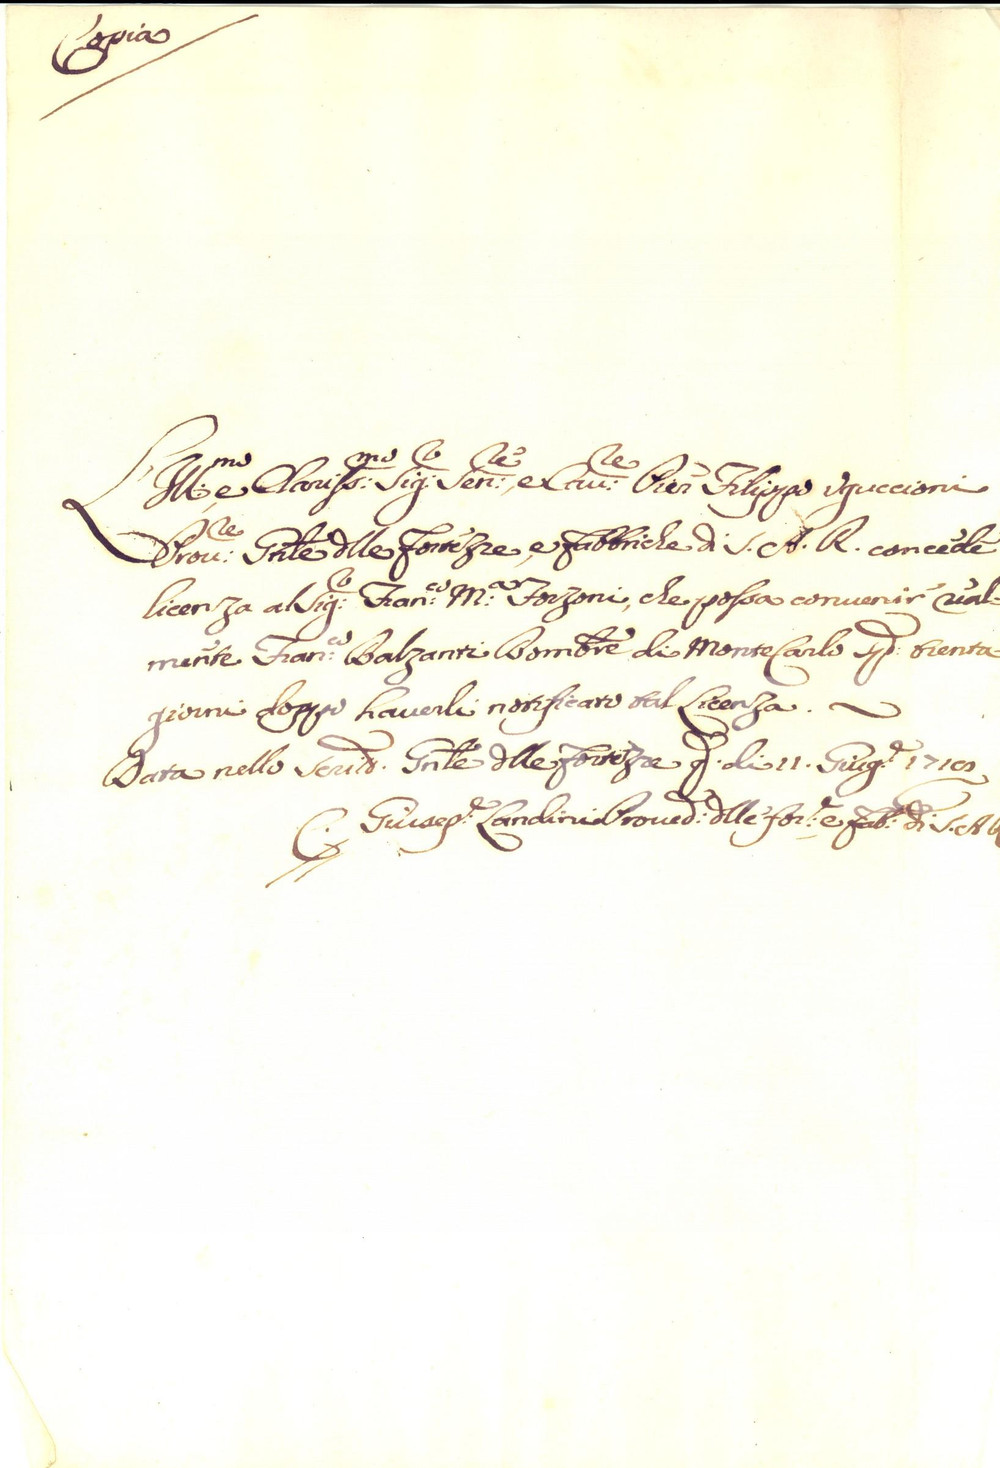 Copia
L'Ill:mo e Clariss:mo Sig:re Sen:re, e Cav:re Pier Filippo Uguccioni
Prov:re Gnle dlle Fortezze, e Fabbriche di S. A. R. concede
licenza al Sig:re Fran:co M:a Forzoni, che possa convenir real-
mente Fran:co Balzanti Bombre di Monte Carlo p. trenta
giorni doppo haverli notificato tal Licenza.
Data nello Scritt. Gnle dlle Fortezze q. di 11. Giug: 1710
Giusep: Landini Proved: dlle For: e Fab: di S. A. R